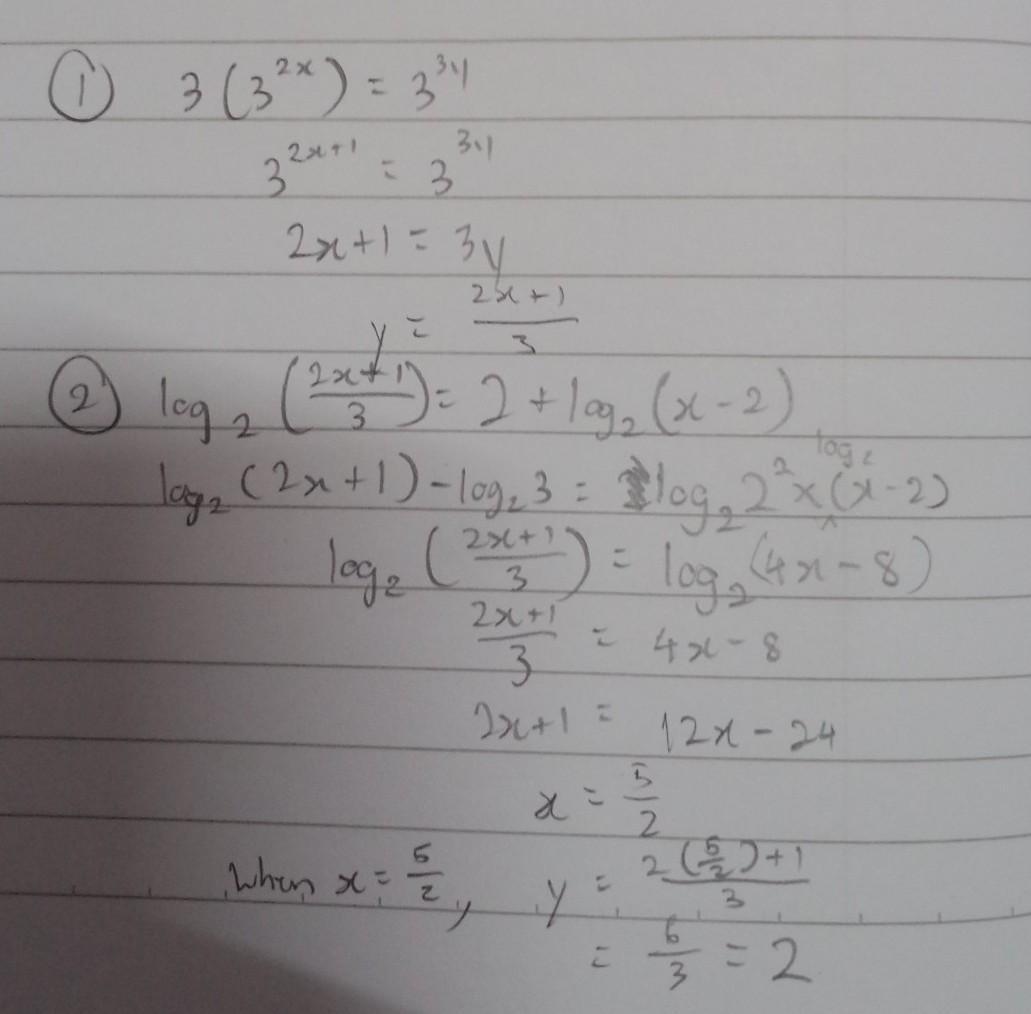 ① 3(3^{2x}) = 3^{3y}
3^{2x+1} = 3^{3y}
2x+1 = 3y
y = \frac{2x+1}{3}
② log₂(\frac{2x+1}{3}) = 2 + log₂(x-2)
log₂(2x+1) - log₂3 = log₂2² × log₂(x-2)
log₂(\frac{2x+1}{3}) = log₂(4x-8)
\frac{2x+1}{3} = 4x-8
2x+1 = 12x-24
x = \frac{5}{2}
When x = \frac{5}{2}, y = \frac{2(\frac{5}{2})+1}{3}
= \frac{6}{3} = 2